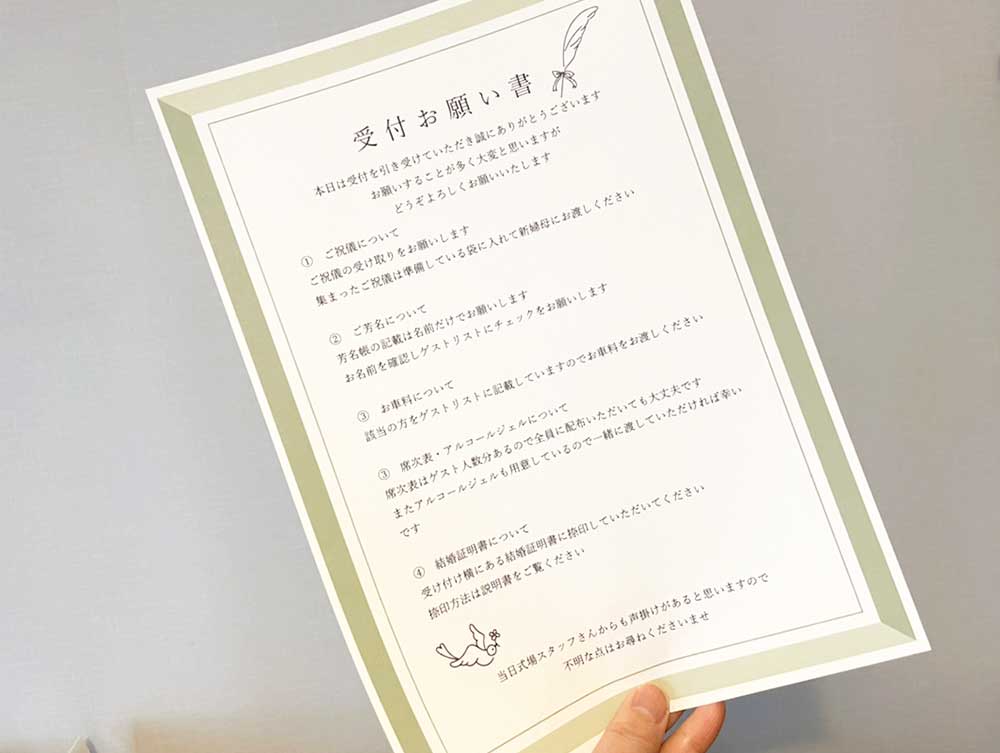 受付お願い書
本日は受付を引き受けていただき誠にありがとうございます
お願いすることが多く大変と思いますが
どうぞよろしくお願いいたします
① ご祝儀について
ご祝儀の受け取りをお願いします
集まったご祝儀は準備している袋に入れて新婦母にお渡しください
② ご芳名について
芳名帳の記載は名前だけでお願いします
お名前を確認しゲストリストにチェックをお願いします
③ お車料について
該当の方をゲストリストに記載していますのでお車料をお渡しください
③ 席次表・アルコールジェルについて
席次表はゲスト人数分あるので全員に配布いただいても大丈夫です
またアルコールジェルも用意しているので一緒に渡していただければ幸い
です
④ 結婚証明書について
受け付け横にある結婚証明書に捺印していただいてください
捺印方法は説明書をご覧ください
当日式場スタッフさんからも声掛けがあると思いますので
不明な点はお尋ねくださいませ